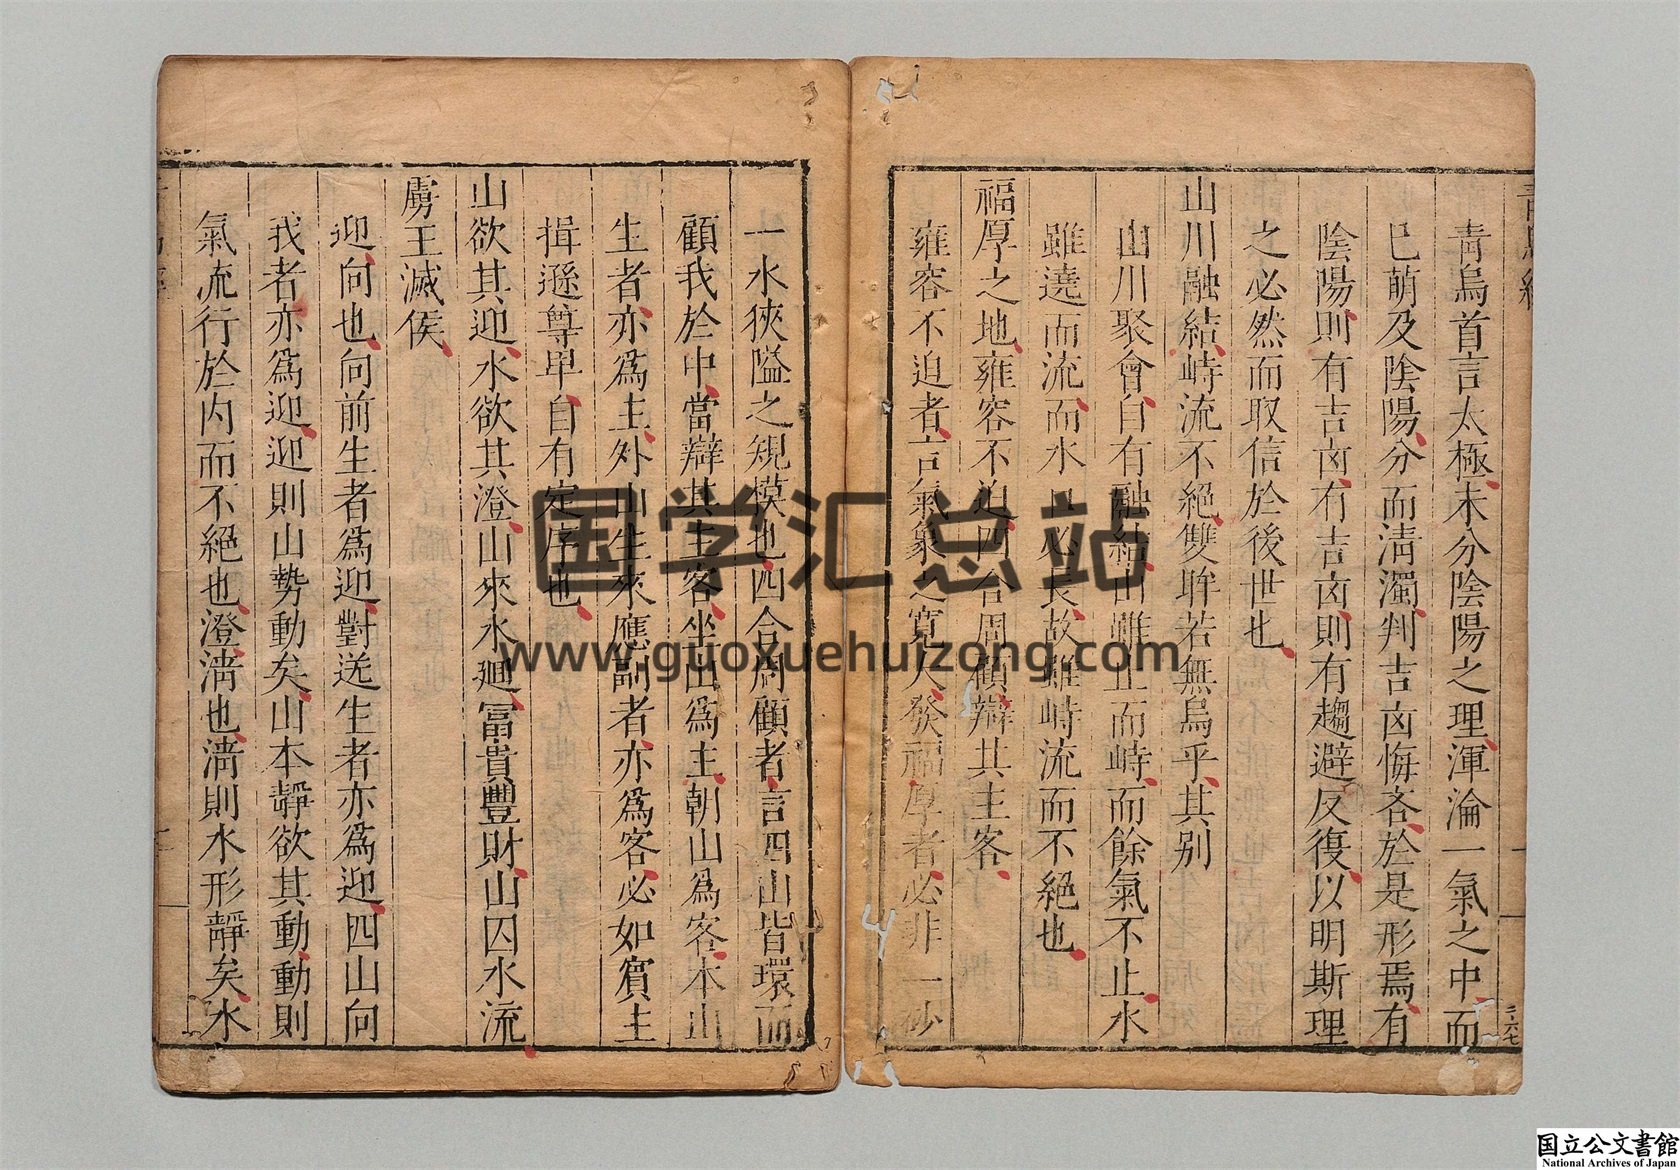 青烏首言太極未分陰陽之理渾淪一氣之中而
已萌及陰陽分而淸濁判吉凶悔吝於是形焉有
陰陽則有吉凶有吉凶則有趨避反復以明斯理
之必然而取信於後世也
山川融結峙流不絕雙眸若無烏乎其別
山川聚會自有融結山雖止而峙而餘氣不止水
雖遶而流而水口必長故雖峙流而不絕也
福厚之地雍容不迫四合周顧辯其主客
雍容不迫者言氣象之寬大發福厚者必非一砂
一水狹隘之規模也四合周顧者言四山皆環而
顧我於中當辯其主客坐山爲主朝山爲客本山
生者亦爲主外山生來應副者亦爲客必如賓主
揖遜尊卑自有定序也
山欲其迎水欲其澄山來水廻冨貴豐財山囚水流
虜王滅侯
迎向也向前生者爲迎對送生者亦爲迎四山向
我者亦爲迎迎則山勢動矣山本靜欲其動動則
氣流行於内而不絕也澄淸也淸則水形靜矣水
国学汇总站
www.guoxuehuizong.com
国立公文書館
National Archives of Japan